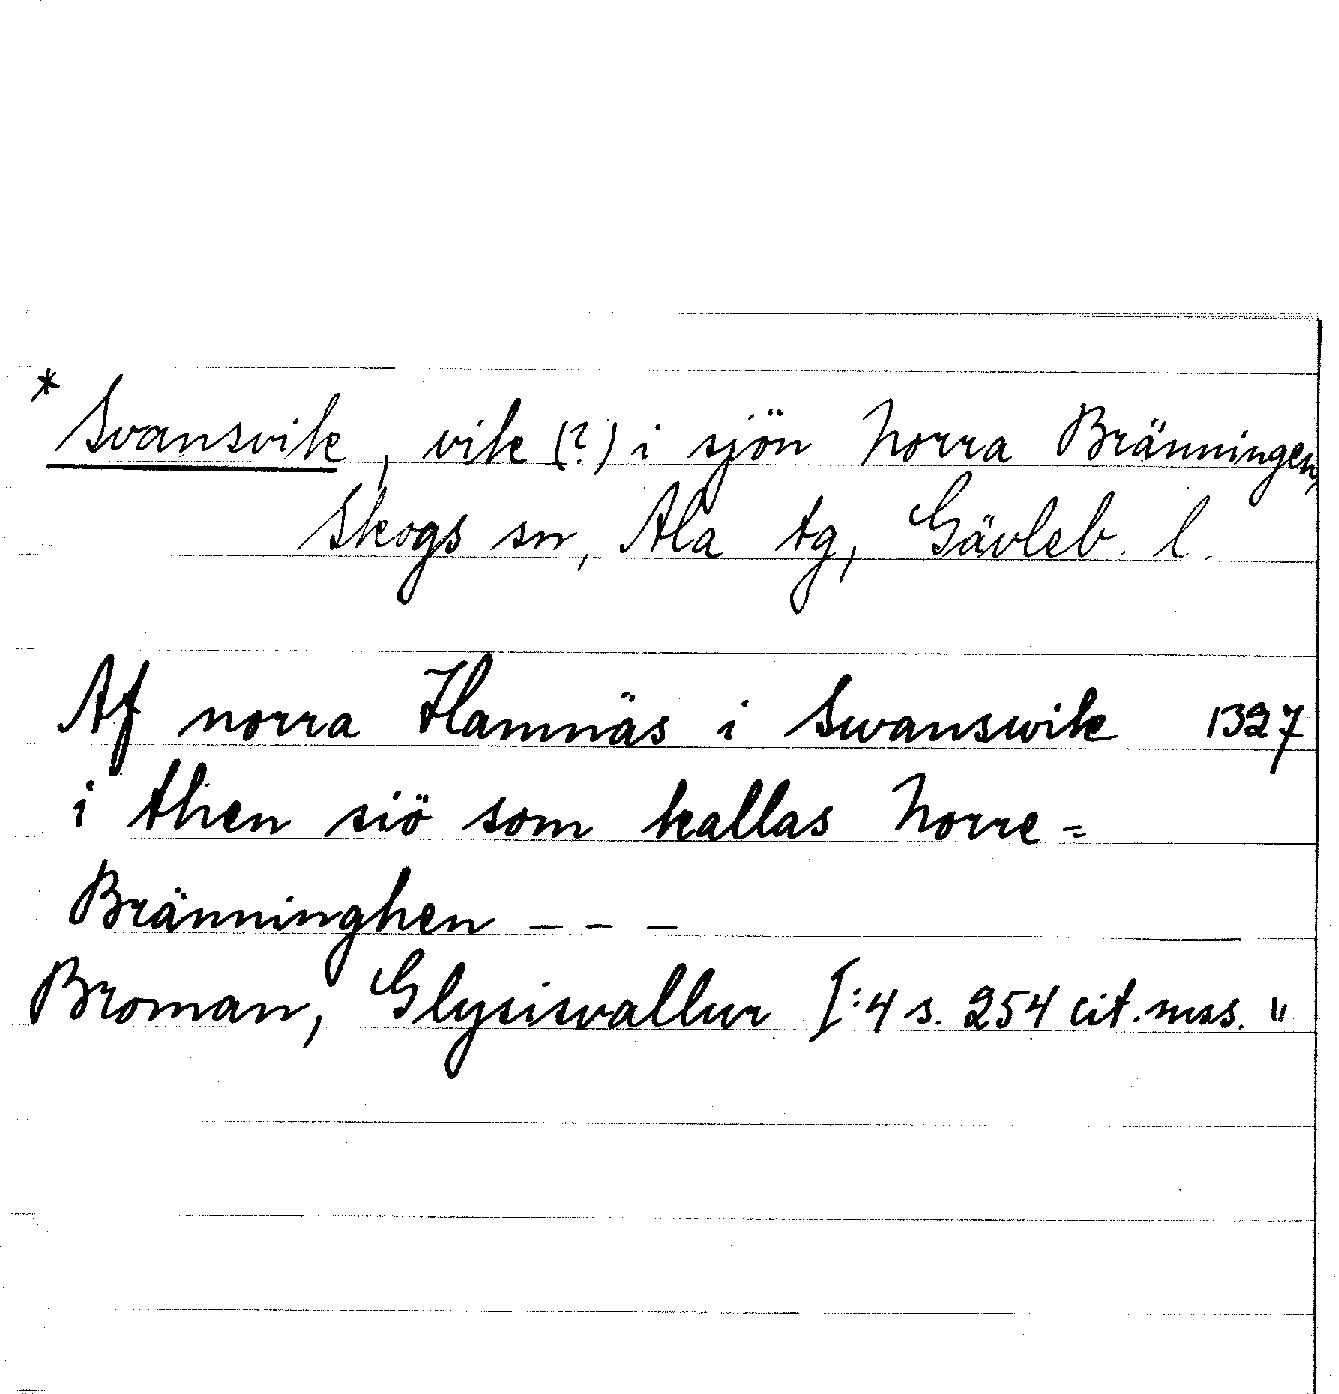 * Svansvik, vik (?) i sjön Norra Bränningen,
Skogs sn, Ala tg, Gävleb. l.
Af norra Hamnäs i Swanswik 1327
i then siö som kallas Norre=
Bränninghen - - -
Broman, Glysisvallur I:4 s. 254 cit. mss. "